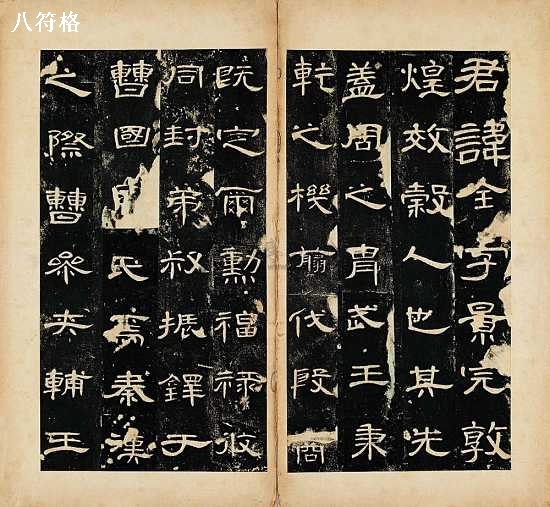 八符格
君諱全字景完敦
煌效穀人也其先
蓋周之胄武王秉
乾之機翦伐殷商
既定爾勳福祿攸
同封弟叔振鐸于
曹國因氏焉秦漢
之際曹參夾輔王